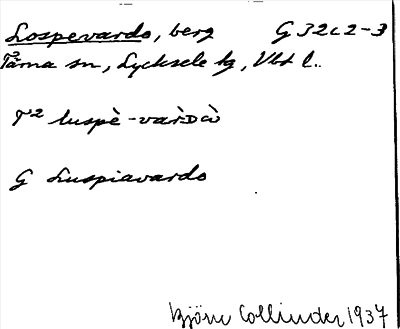 Lospevardo, berg G 32c2-3
Tärna sn, Lycksele lg, Vbt l.
T² luspè-vàrDà
G Luspiavardo
Björn Collinder 1937